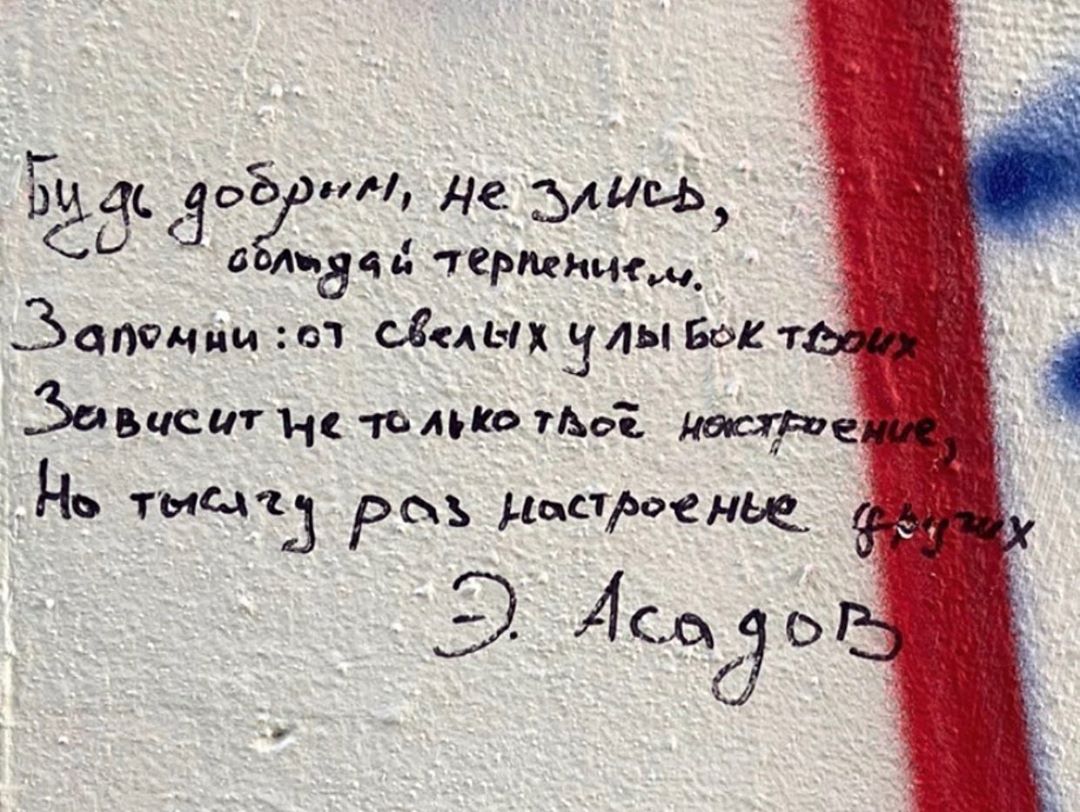 Будь добрым, не злись,
обладай терпением.
Запомни: от свелых улыбок твоих
Зависит не только твоё настроение,
Но тысячу раз настроенье других
Э. Асадов